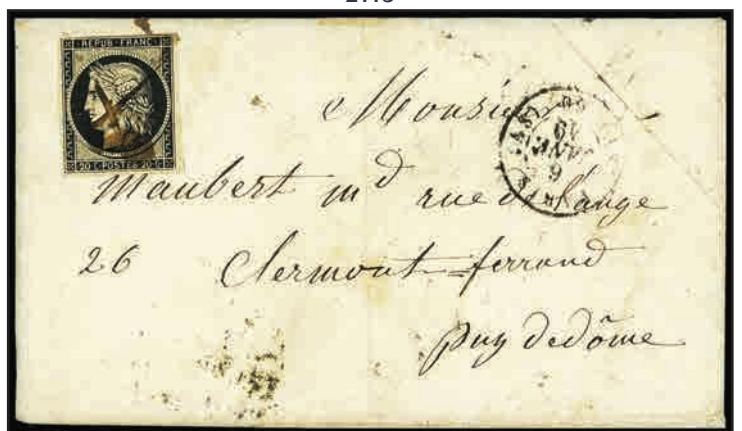 REPUB·FRANC
20·C·POSTES·20·C
Monsieur
Maubert md rue de l'ange
26 Clermont-ferrand
puy de dôme
JANV.